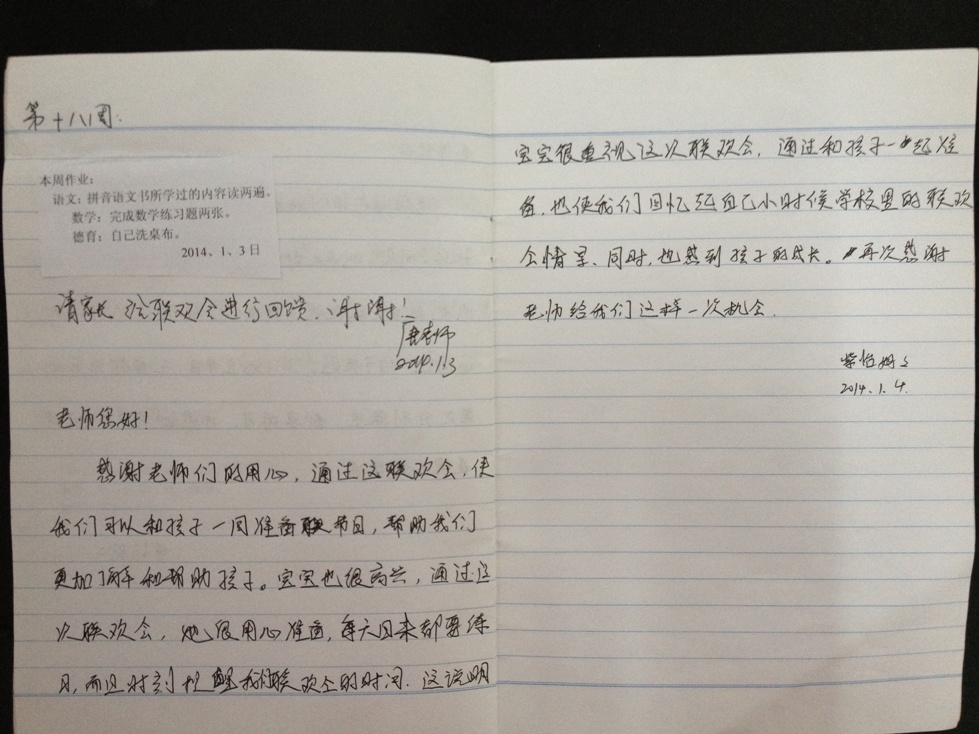 第十八周:
本周作业:
语文:拼音语文书所学过的内容读两遍。
数学:完成数学练习题两张。
德育:自己洗桌布。
2014、1、3日
请家长给联欢会进行回馈、谢谢!
唐老师
2014.1.3
老师您好!
感谢老师们的用心,通过这联欢会,使
我们可以和孩子一同准备联节目,帮助我们
更加了解和帮助孩子。宝宝也很高兴,通过这
次联欢会,她很用心准备,每天回来都要练
习,而且时刻提醒我们联欢会的时间.这说明
宝宝很重视这次联欢会,通过和孩子一起准
备,也使我们回忆起自己小时候学校里的联欢
会情景、同时,也感到孩子的成长。再次感谢
老师给我们这样一次机会.
怡妈妈
2014.1.4.